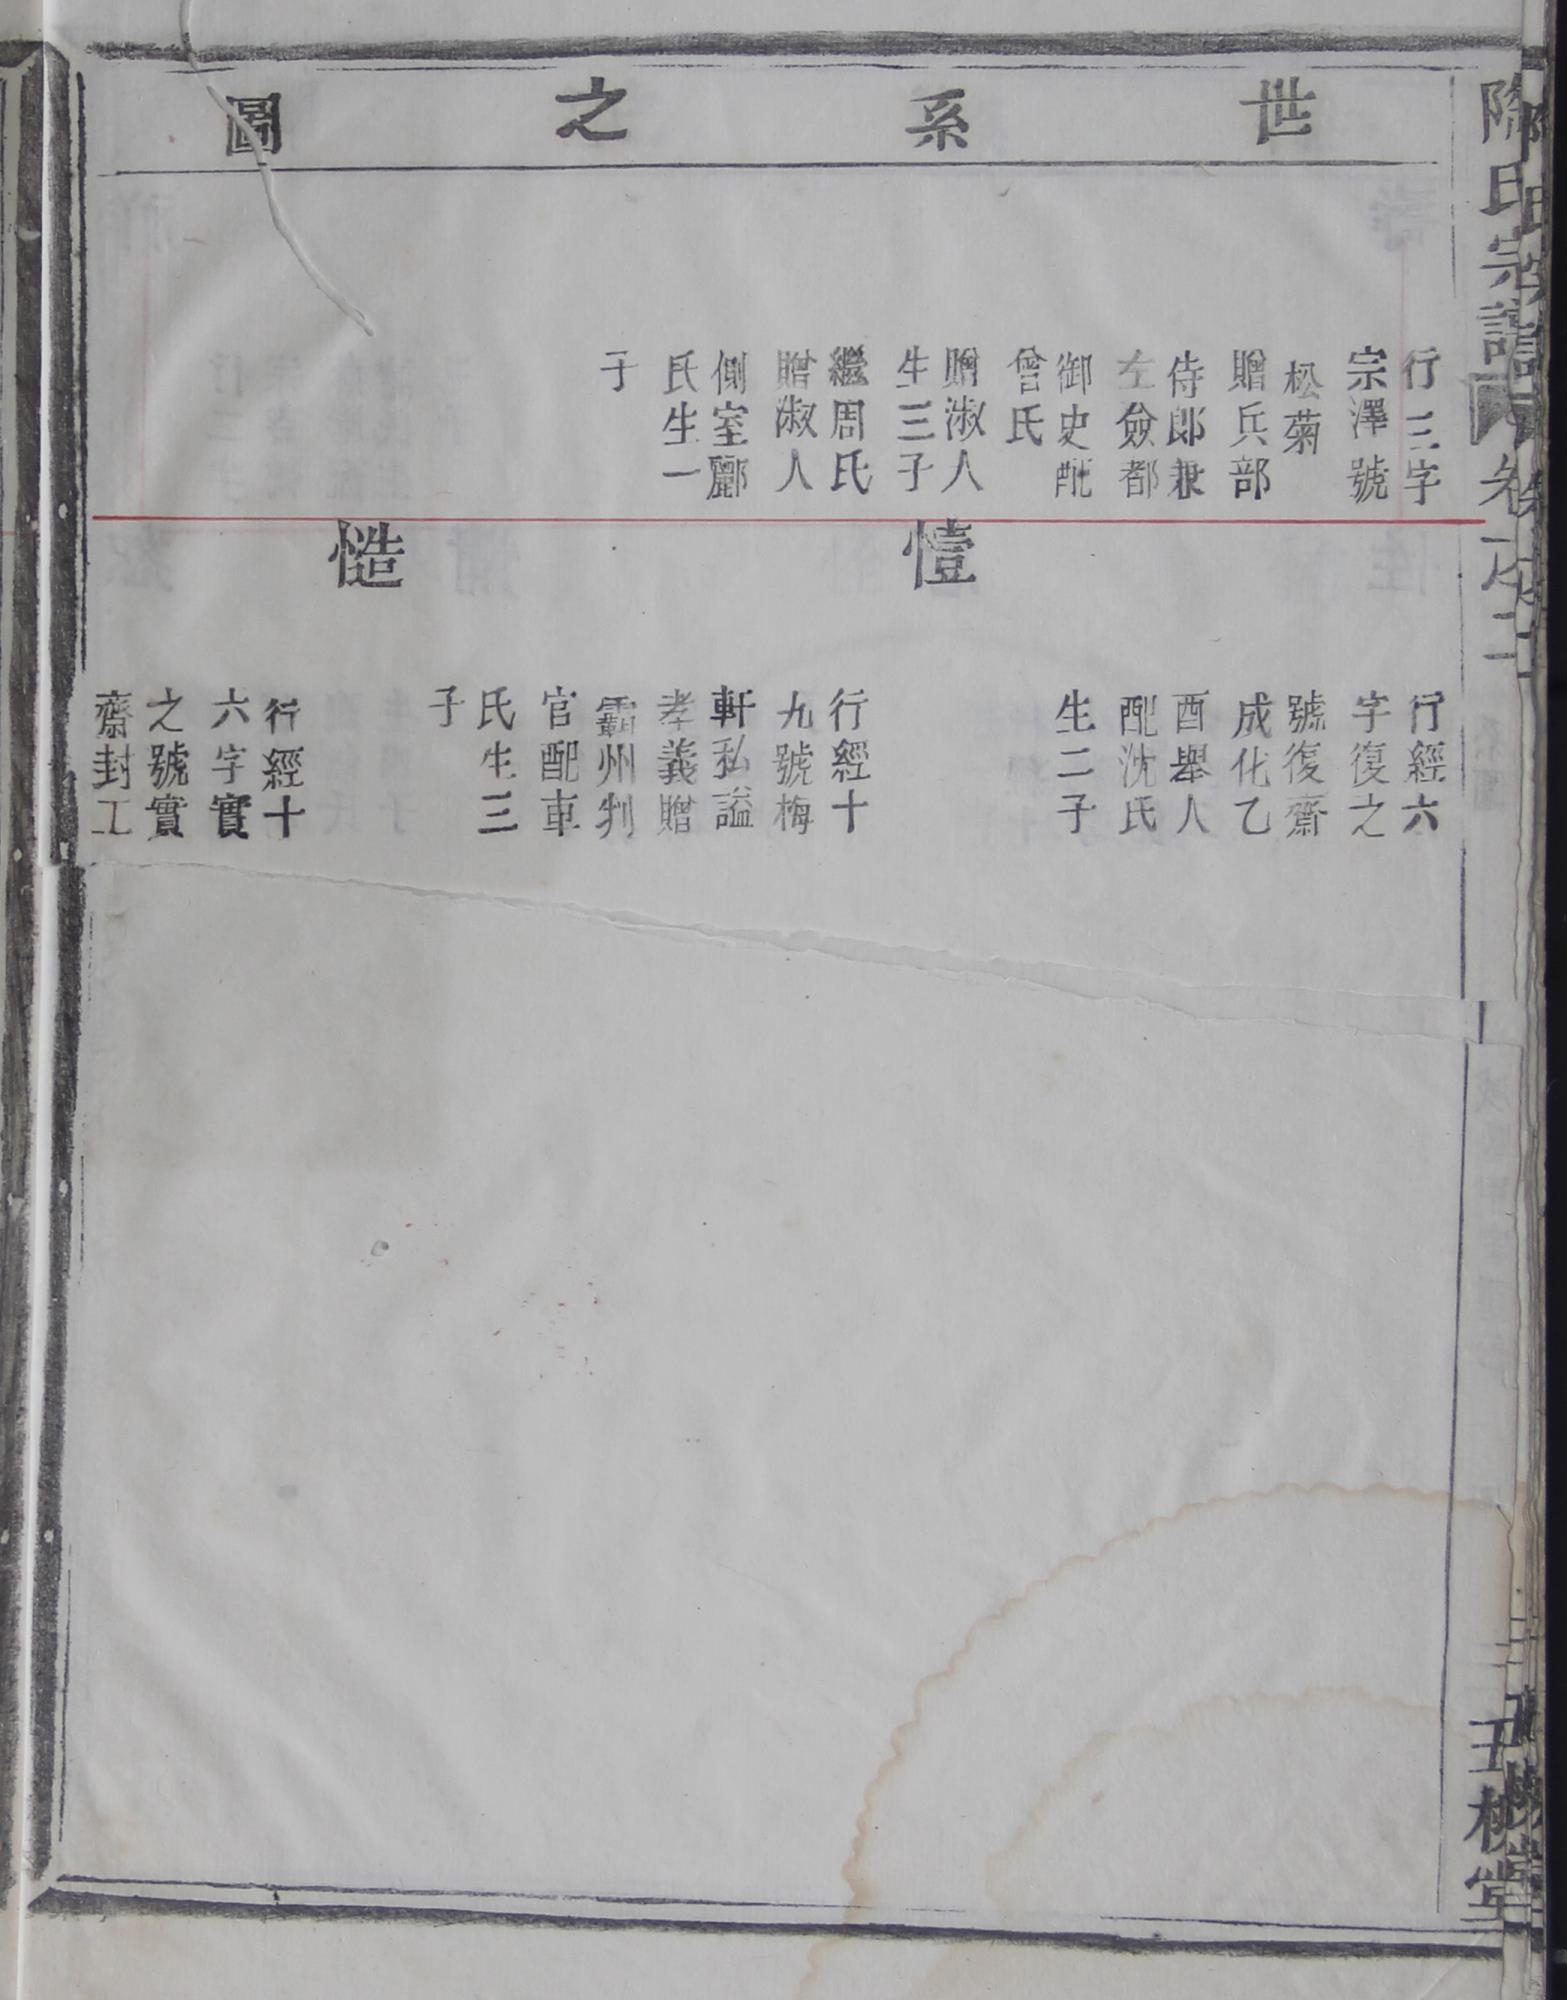 世系之圖
行三字
宗澤號
松菊
贈兵部
侍郎兼
左僉都
御史配
曾氏
贈淑人
生三子
繼周氏
贈淑人
側室酈
氏生一
子
行經六
字復之
號復齋
成化乙
酉舉人
配沈氏
生二子
㦤
行經十
九號梅
軒私謚
孝義贈
霸州判
官配車
氏生三
子
慥
行經十
六字實
之號實
齋封工
陶氏宗譜
卷之二
五柳堂